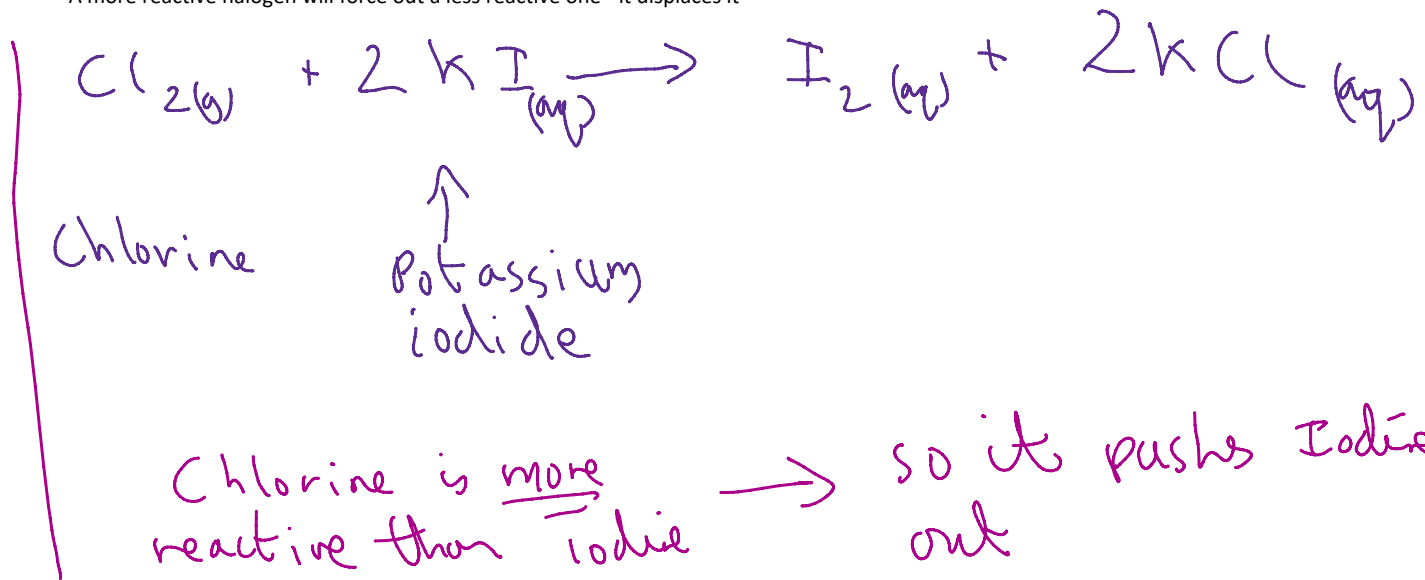 A more reactive halogen will force out a less reactive one - it displaces it
Cl2(g) + 2KI(aq) → I2(aq) + 2KCl(aq)
↑
Chlorine Potassium
iodide
Chlorine is more → so it pushs Iodine
reactive than iodie out